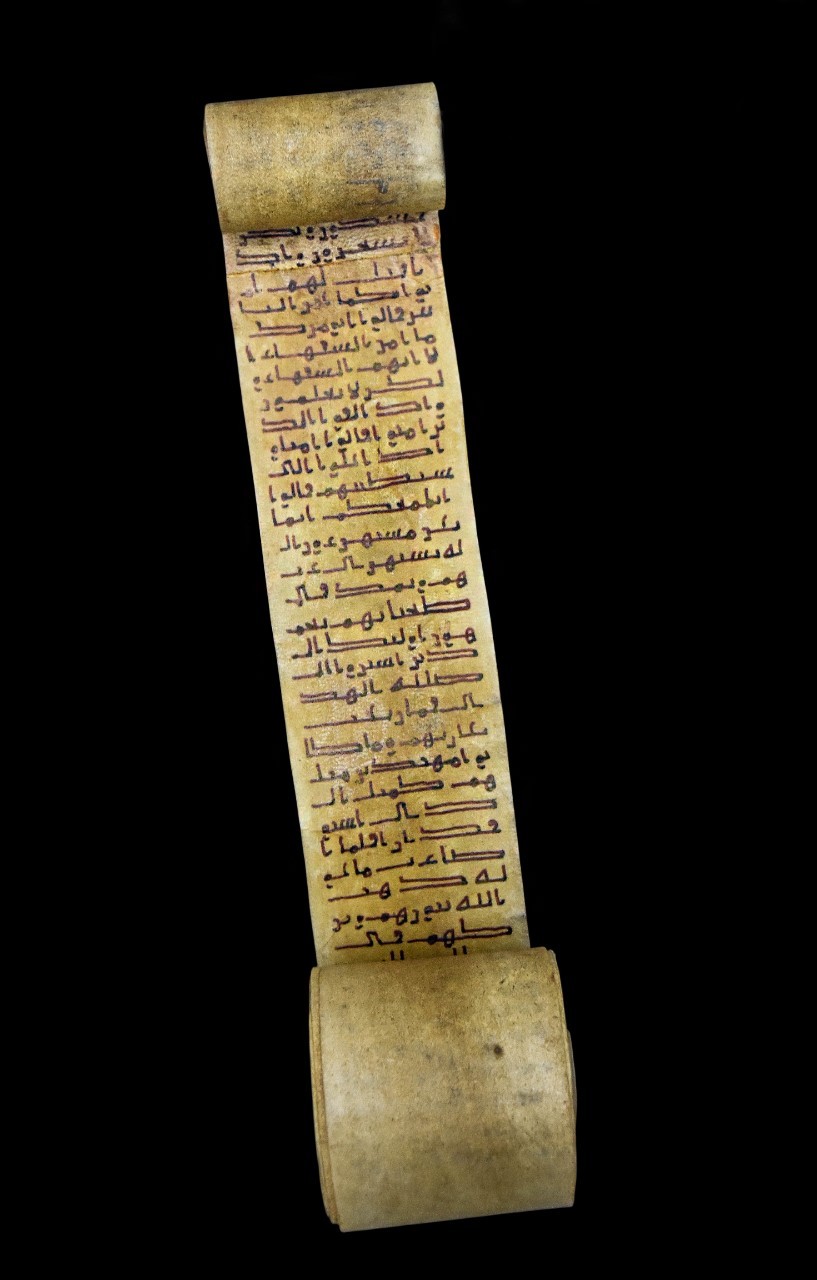 لمفسدون ولكن
لا يشعرون واذ
ا قيل لهم ام
نوا كما امن النا
س قالوا انومن ك
ما امن السفهاء ا
لا انهم السفهاء و
لكن لا يعلمون
واذا لقوا الذ
ين امنوا قالوا امنا و
اذا خلوا الى
شيطينهم قالوا ا
نا معكم انما
نحن مستهزءون ال
له يستهزئ ب
هم ويمد في
طغيانهم يعم
هون اولئك ال
ذين اشتروا ال
ضللة بالهد
ى فما ربحت
تجارتهم وما كا
نوا مهتدين مثل
هم كمثل ال
ذي استو
قد نارا فلما ا
ضاءت ما حو
له ذهب
الله بنورهم وتر
كهم في